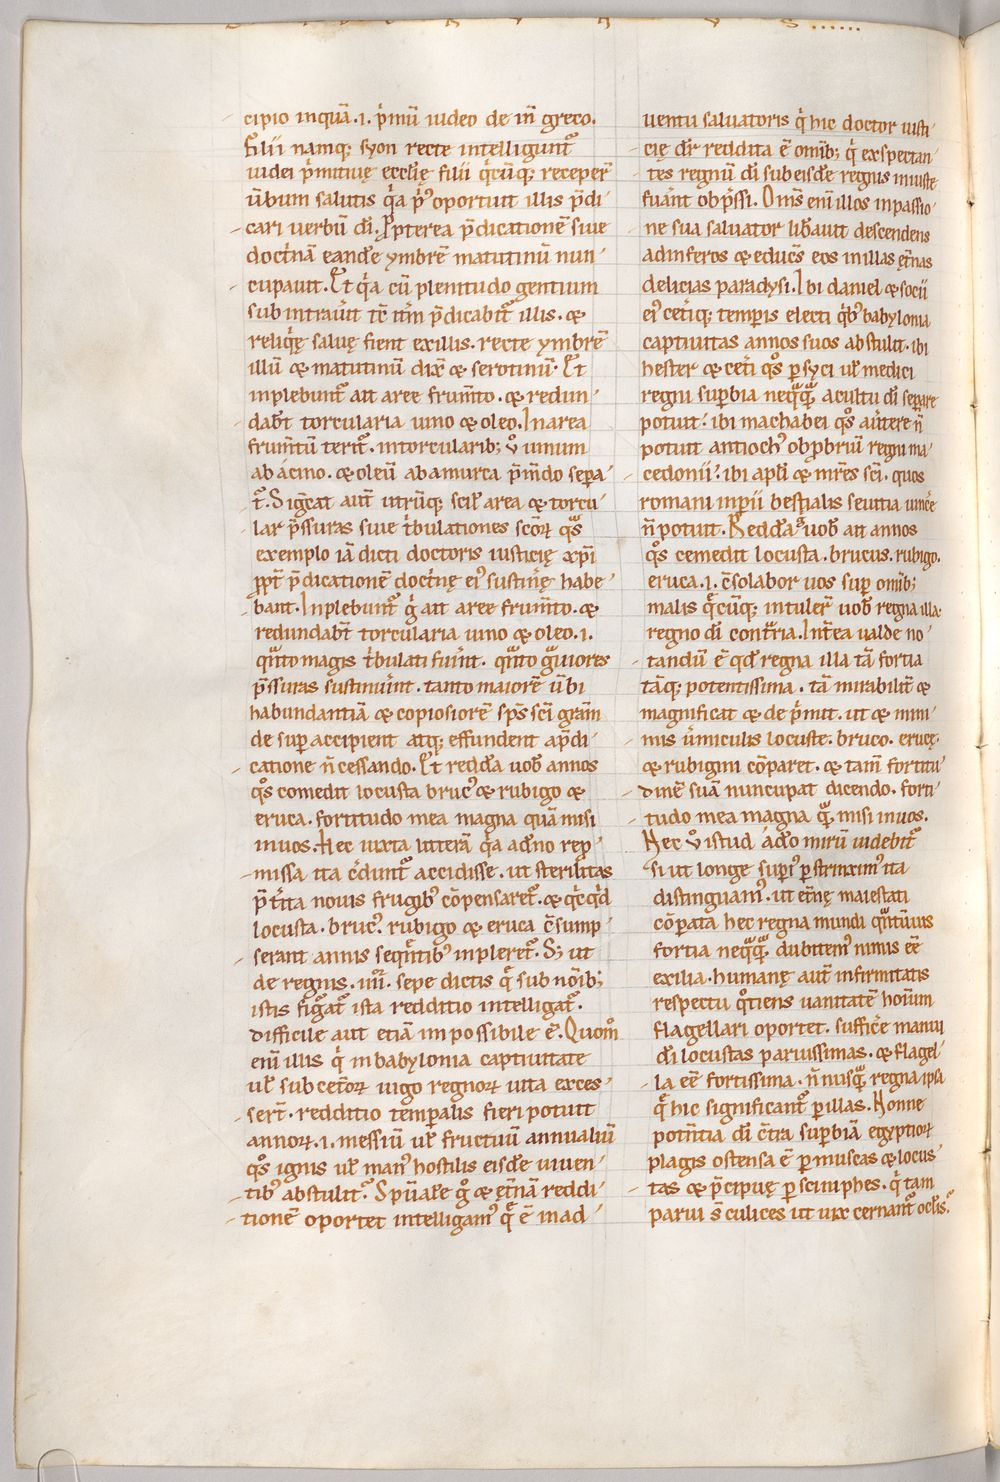 cipio inquā .i. p̍mū uideo de in̄ greco.
Filii namq; syon recte intelligunt᷑
iudei p̍mitiuę eccl̄ię filii q̍cūq; receper̄
ūbum salutis q̍a p̍ꝰ oportuit illis p̄di
cari uerbū dī. ꝓpterea p̄dicationē siue
doct̍nā eand̄e ymbrē matutinū nun
cupauit. Et q̍a cū plenitudo gentium
subintrau̍it tc̄ it̄m p̄dicabit᷑ illis. &
reliq̍ę saluę fient exillis. recte ymbrē
illū & matutinū dix̄ & serotinū. Et
inplebunt᷑ ait aree frum̄to. & redun
dab̄t torcularia uino & oleo. In area
frum̄tum terit᷑. intorcularib; ů uinum
ab acino. & oleū abamurca p̄m̄do sepa
t᷑. Sig̅cat aut̄ utrūq; scil̄ area & torcu
lar p̄ssuras siue t̍bulationes scōꝝ qͣs
exemplo iā dicti doctoris iusticię xp̄i
ꝓpt̄ p̄dicationē doct̍nę eiꝰ sustin̄ę habe
bant. Inplebunt᷑ g̍ ait aree frum̄to. &
redundab̄t torcularia uino & oleo. i.
qͣnto magis t̍bulati fu̍int. qͣnto gͣuiores
p̄ssuras sustinu̍int. tanto maiorē ūbi
habundantiā & copiosiorē sp̄s sc̄i gr̄am
de sup accipient atq; effundent ap̄di
catione n̄ cessando. Et redd̄a uob̄ annos
qͦs comedit locusta brucꝰ & rubigo &
eruca. fortitudo mea magna quā misi
inuos. Hec iuxta litterā q̍a ad̄no rep
missa ita c̄dunt᷑ accidisse. ut sterilitas
p̄t̍ita nouis frugibꝰ cōpensaret᷑. & q̍cq̍d
locusta. brucꝰ. rubigo & eruca c̄sump
serant annis seq̄ntibꝰ inpleret᷑. S; ut
de regnis .iiii. sepe dictis q̄ sub nōib;
istis fig̍at᷑ ista redditio intelligat᷑.
difficile aut etiā impossibile ē. Quom̊
eni illis q̍ inbabylonia captiuitate
ul̄ sub cet̄oꝝ iugo regnoꝝ uita exces
ser̄t. redditio temp̄alis fieri potuit
annoꝝ .i. messiū ul̄ fructuū annualiū
qͦs ignis ul̄ manꝰ hostilis eisd̄e uiuen
tibꝰ abstulit᷑. Sp̄ual̄e gͦ & et̄nā reddi
tionē oportet intelligamꝰ q̄ ē inad
uentu saluatoris q̍ hic doctor iusti
cię dr̄ reddita ē omīb; q̍ exspectan
tes regnū dī sub eisd̄e regnis iniuste
fu̍ant obp̄ssi. Om̄s enī illos inpassio
ne sua saluator lib̄auit descendens
adinferos & educ̄s eos inillas et̄nas
delicias paradysi. Ibi daniel & socii
eiꝰ cet̍iq; temp̄is electi q̍bꝰ babylonia
captiuitas annos suos abstulit. ibi
hester & cet̍i qͦs psyci ul̄ medici
regni supbia neqͣqͣ acultu dī separe
potuit. ibi machabei qͦs au̍tere n̄
potuit antiochꝰ obp̄briū regni ma
cedonii. ibi apl̄i & mr̄es sc̄i. quos
romani inperii bestialis seuitia uinc̍e
n̄ potuit. Redd̄a uob̄ ait annos
qͦs comedit locusta. brucus. rubigo.
eruca .i. c̄solabor uos sup omīb;
malis q̄cūq; intuler̄ uob̄ regna illa
regno dī cont̍ria. Int̄ea ualde no
tandū ē qd̄ regna illa tā fortia
tāq; potentissima. tā mirabilit̄ &
magnificat & dep̍mit. ut & mini
mis u̍miculis locuste. bruco. erucę.
& rubigini cōparet. & tam̄ fortitu
dinē suā nuncupat dicendo. forti
tudo mea magna qͣ misi inuos.
Hec ů istud ad̊o mirū uidebit᷑
si ut longe supiꝰ pstrinximꝰ ita
distinguamꝰ. ut et̄nę maiestati
cōpata hec regna mundi qͣntūuis
fortia neqͣqͣ dubitemꝰ nimis eē
exilia. humanę aut̄ infirmitatis
respectu qͦtiens uanitatē hoīum
flagellari oportet. suffic̍e manui
dī locustas paruissimas. & flagel
la eē fortissima. n̄ nusqͣ regna ipsa
q̄ hic significant᷑ pillas. Nonne
pot̄ntia dī c̄tra supbiā egyptioꝝ
plagis ostensa ē pmuscas & locus
tas & p̄cipuę psciniphes. q̍ tam
parui s̄ culices ut uix cernant᷑ ocl̄is.